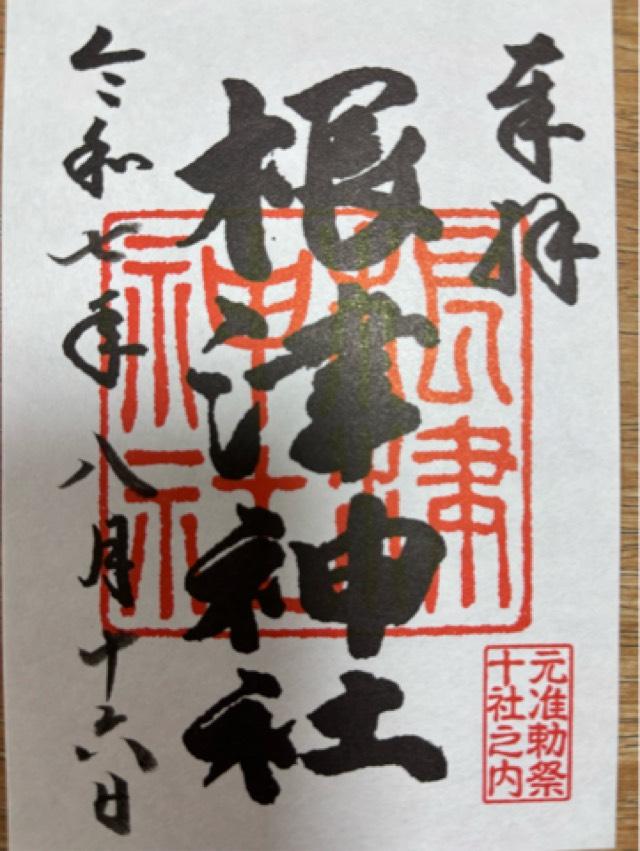 奉拝
根津神社
根津
神社
元准勅祭
十社之内
令和七年八月十六日